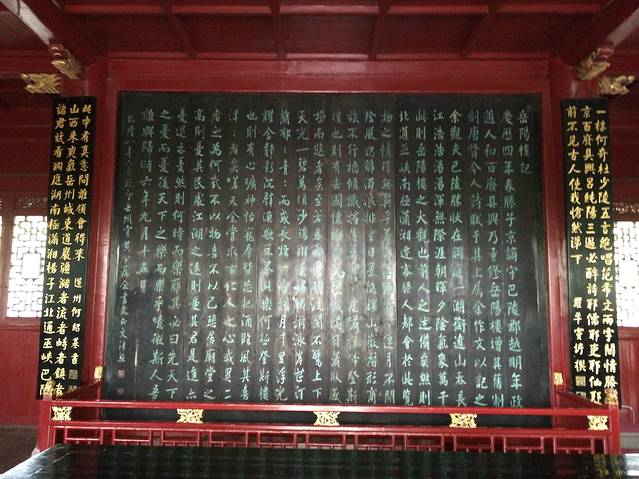 一樓何奇杜少陵五言絶唱范希文兩字關情滕子
京百廢具興呂純陽三過必醉詩耶儒耶吏耶仙耶
前不見古人使我愴然涕下
竇垿撰
岳陽樓記
慶曆四年春滕子京謫守巴陵郡越明年政
通人和百廢具興乃重修岳陽樓增其舊制
刻唐賢今人詩賦于其上屬余作文以記之
余觀夫巴陵勝狀在洞庭一湖銜遠山吞長
江浩浩湯湯渾無際涯朝暉夕陰氣象萬千
此則岳陽樓之大觀也前人之述備矣然則
北通巫峽南極瀟湘遷客騷人多會于此覽
物之情得無異乎連月不開
陰風怒號濁浪排空日星隱耀山岳潛形商
旅不行檣傾楫摧薄暮冥冥虎嘯猿啼登斯
樓也則有去國懷鄉憂讒畏譏滿目蕭然感
極而悲者矣至若春和景明波瀾不驚上下
天光一碧萬頃沙鷗翔集錦鱗游泳岸芷汀
蘭郁郁青青而或長煙一空皓月千里浮光
耀金靜影沉璧漁歌互答此樂何極登斯樓
也則有心曠神怡寵辱皆忘把酒臨風其喜
洋洋者矣嗟夫予嘗求古仁人之心或異二
者之為何哉不以物喜不以己悲居廟堂之
高則憂其民處江湖之遠則憂其君是進亦
憂退亦憂然則何時而樂耶其必曰先天下
之憂而憂後天下之樂而樂乎噫微斯人吾
誰與歸時六年九月十五日
乾隆八年
諸君試看洞庭湖南極瀟湘揚子江北通巫峽巴陵
山西來爽氣岳州城東道巖疆瀦者流者峙者鎮者
此中有真意問誰領會得來
道州何紹基書